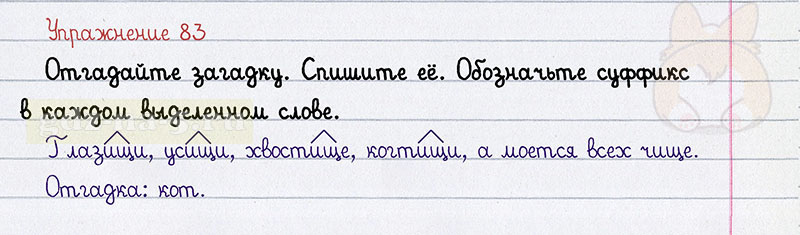 Упражнение 83
Отгадайте загадку. Спишите её. Обозначьте суффикс
в каждом выделенном слове.
Глазищи, усищи, хвостище, когтищи, а моется всех чище.
Отгадка: кот.